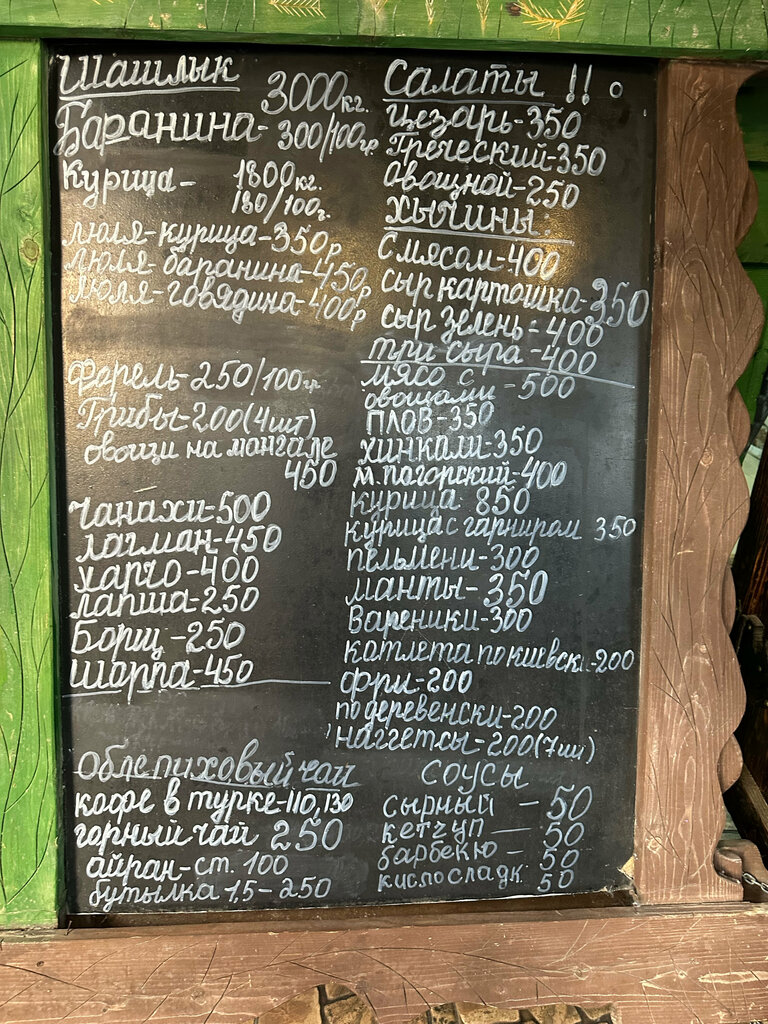 Шашлык
3000кг.
Баранина- 300/100гр.
Курица- 1800кг.
180/100г.
люля-курица-350р
люля-баранина-450р
люля-говядина-400р
Форель-250/100гр.
Грибы-200(4шт)
овощи на мангале
450
чанахи-500
лагман-450
харчо-400
лапша-250
Борщ-250
шорпа-450
Облепиховый чай
кофе в турке-110,130
горный чай 250
айран-ст. 100
бутылка 1,5-250
Салаты !!
цезарь-350
Греческий-350
овощной-250
Хычины:
С мясом-400
сыр картошка-350
сыр зелень-400
три сыра-400
мясо с
овощами-500
плов-350
хинкали-350
м.погорский-400
курица 850
курица с гарниром 350
пельмени-300
манты-350
Вареники-300
котлета по киевски-200
фри-200
по деревенски-200
наггетсы-200(7шт)
Соусы
сырный - 50
кетчуп - 50
барбекю - 50
кислосладк 50